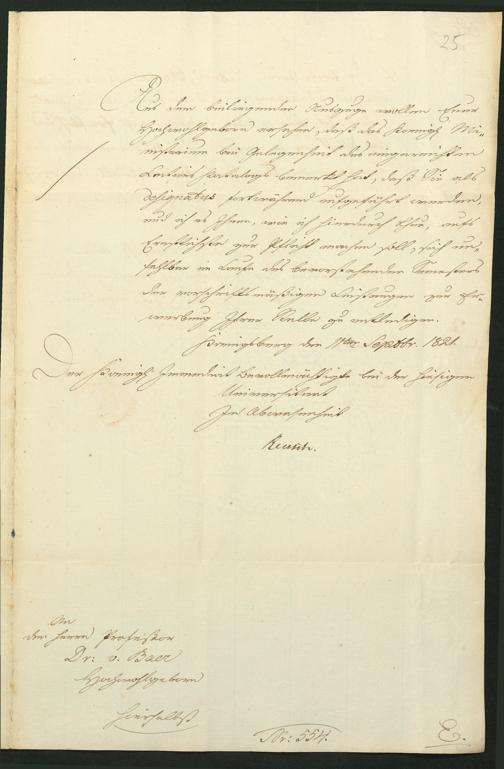 25
Aus dem beiliegenden Auszuge wollen Euer
Hochwohlgeboren ersehen, daß das Königl. Mi-
nisterium bei Gelegenheit des eingereichten
Lections Katalogs bemerkt hat, daß Sie als
designatus fortwährend aufgeführt werden,
und ich es Ihnen, wie ich hierdurch thue, aufs
Ernstlichste zur Pflicht machen soll, sich un-
fehlbar im Laufe des bevorstehenden Semesters
der vorschriftsmäßigen Leistungen zur Er-
werbung Ihrer Stelle zu entledigen.
Königsberg den 11ten Septbr. 1821.
Der Königl. Bevollmächtigte bei der hiesigen
Universitaet
In Abwesenheit
Reusch.
An
den Herrn Professor
Dr: v. Baer
Hochwohlgeboren
hierselbst
Nr: 554.
E.